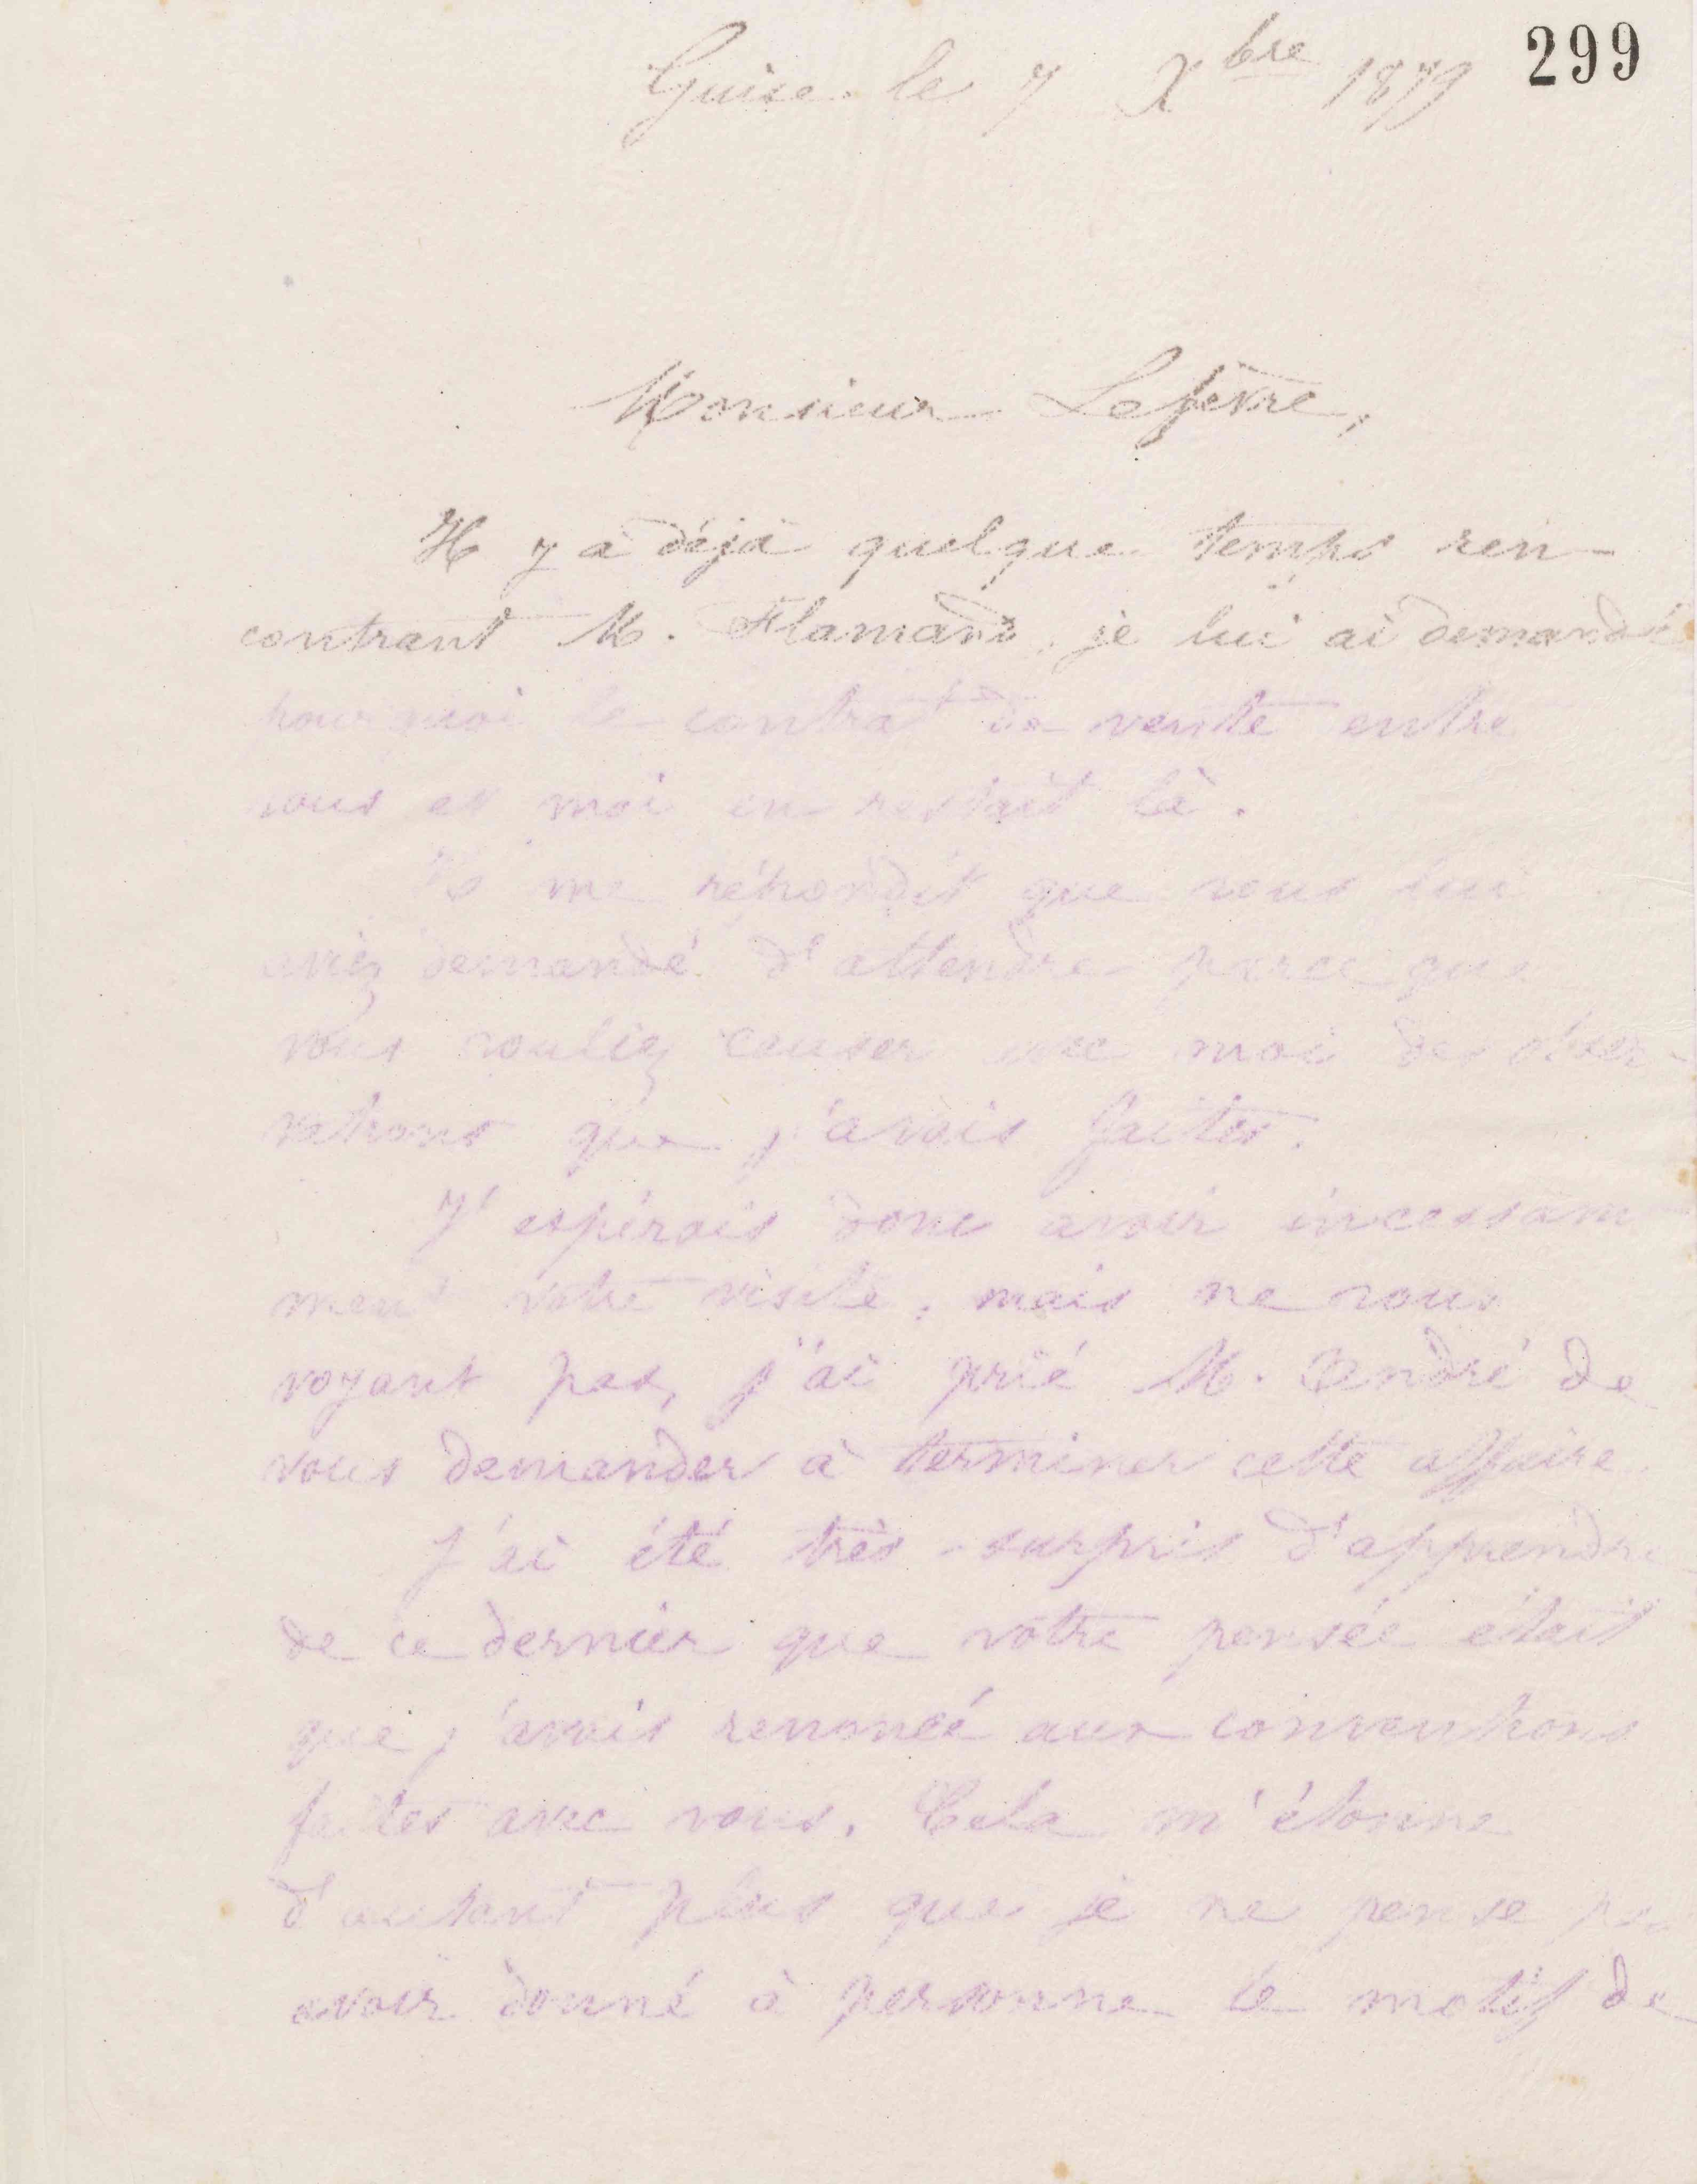 299
Guise le 7 Xbre 1879
Monsieur Lefèvre,
Il y a déjà quelque temps ren-
contrant M. Flamand, je lui ai demandé
pourquoi le contrat de vente entre
vous et moi en restait là.
Il me répondit que vous lui
aviez demandé d'attendre parce que
vous vouliez causer avec moi des obser-
vations que j'avais faites.
J'espérais donc avoir incessam
ment votre visite, mais ne vous
voyant pas, j'ai prié M. André de
vous demander à terminer cette affaire.
J'ai été très surpris d'apprendre
de ce dernier que votre pensée était
que j'avais renoncé aux conventions
faites avec vous. Cela m'étonne
d'autant plus que je ne pense pas
avoir donné à personne le motif de